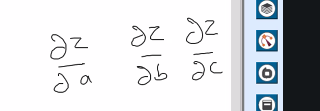 ∂z/∂a ∂z/∂b ∂z/∂c